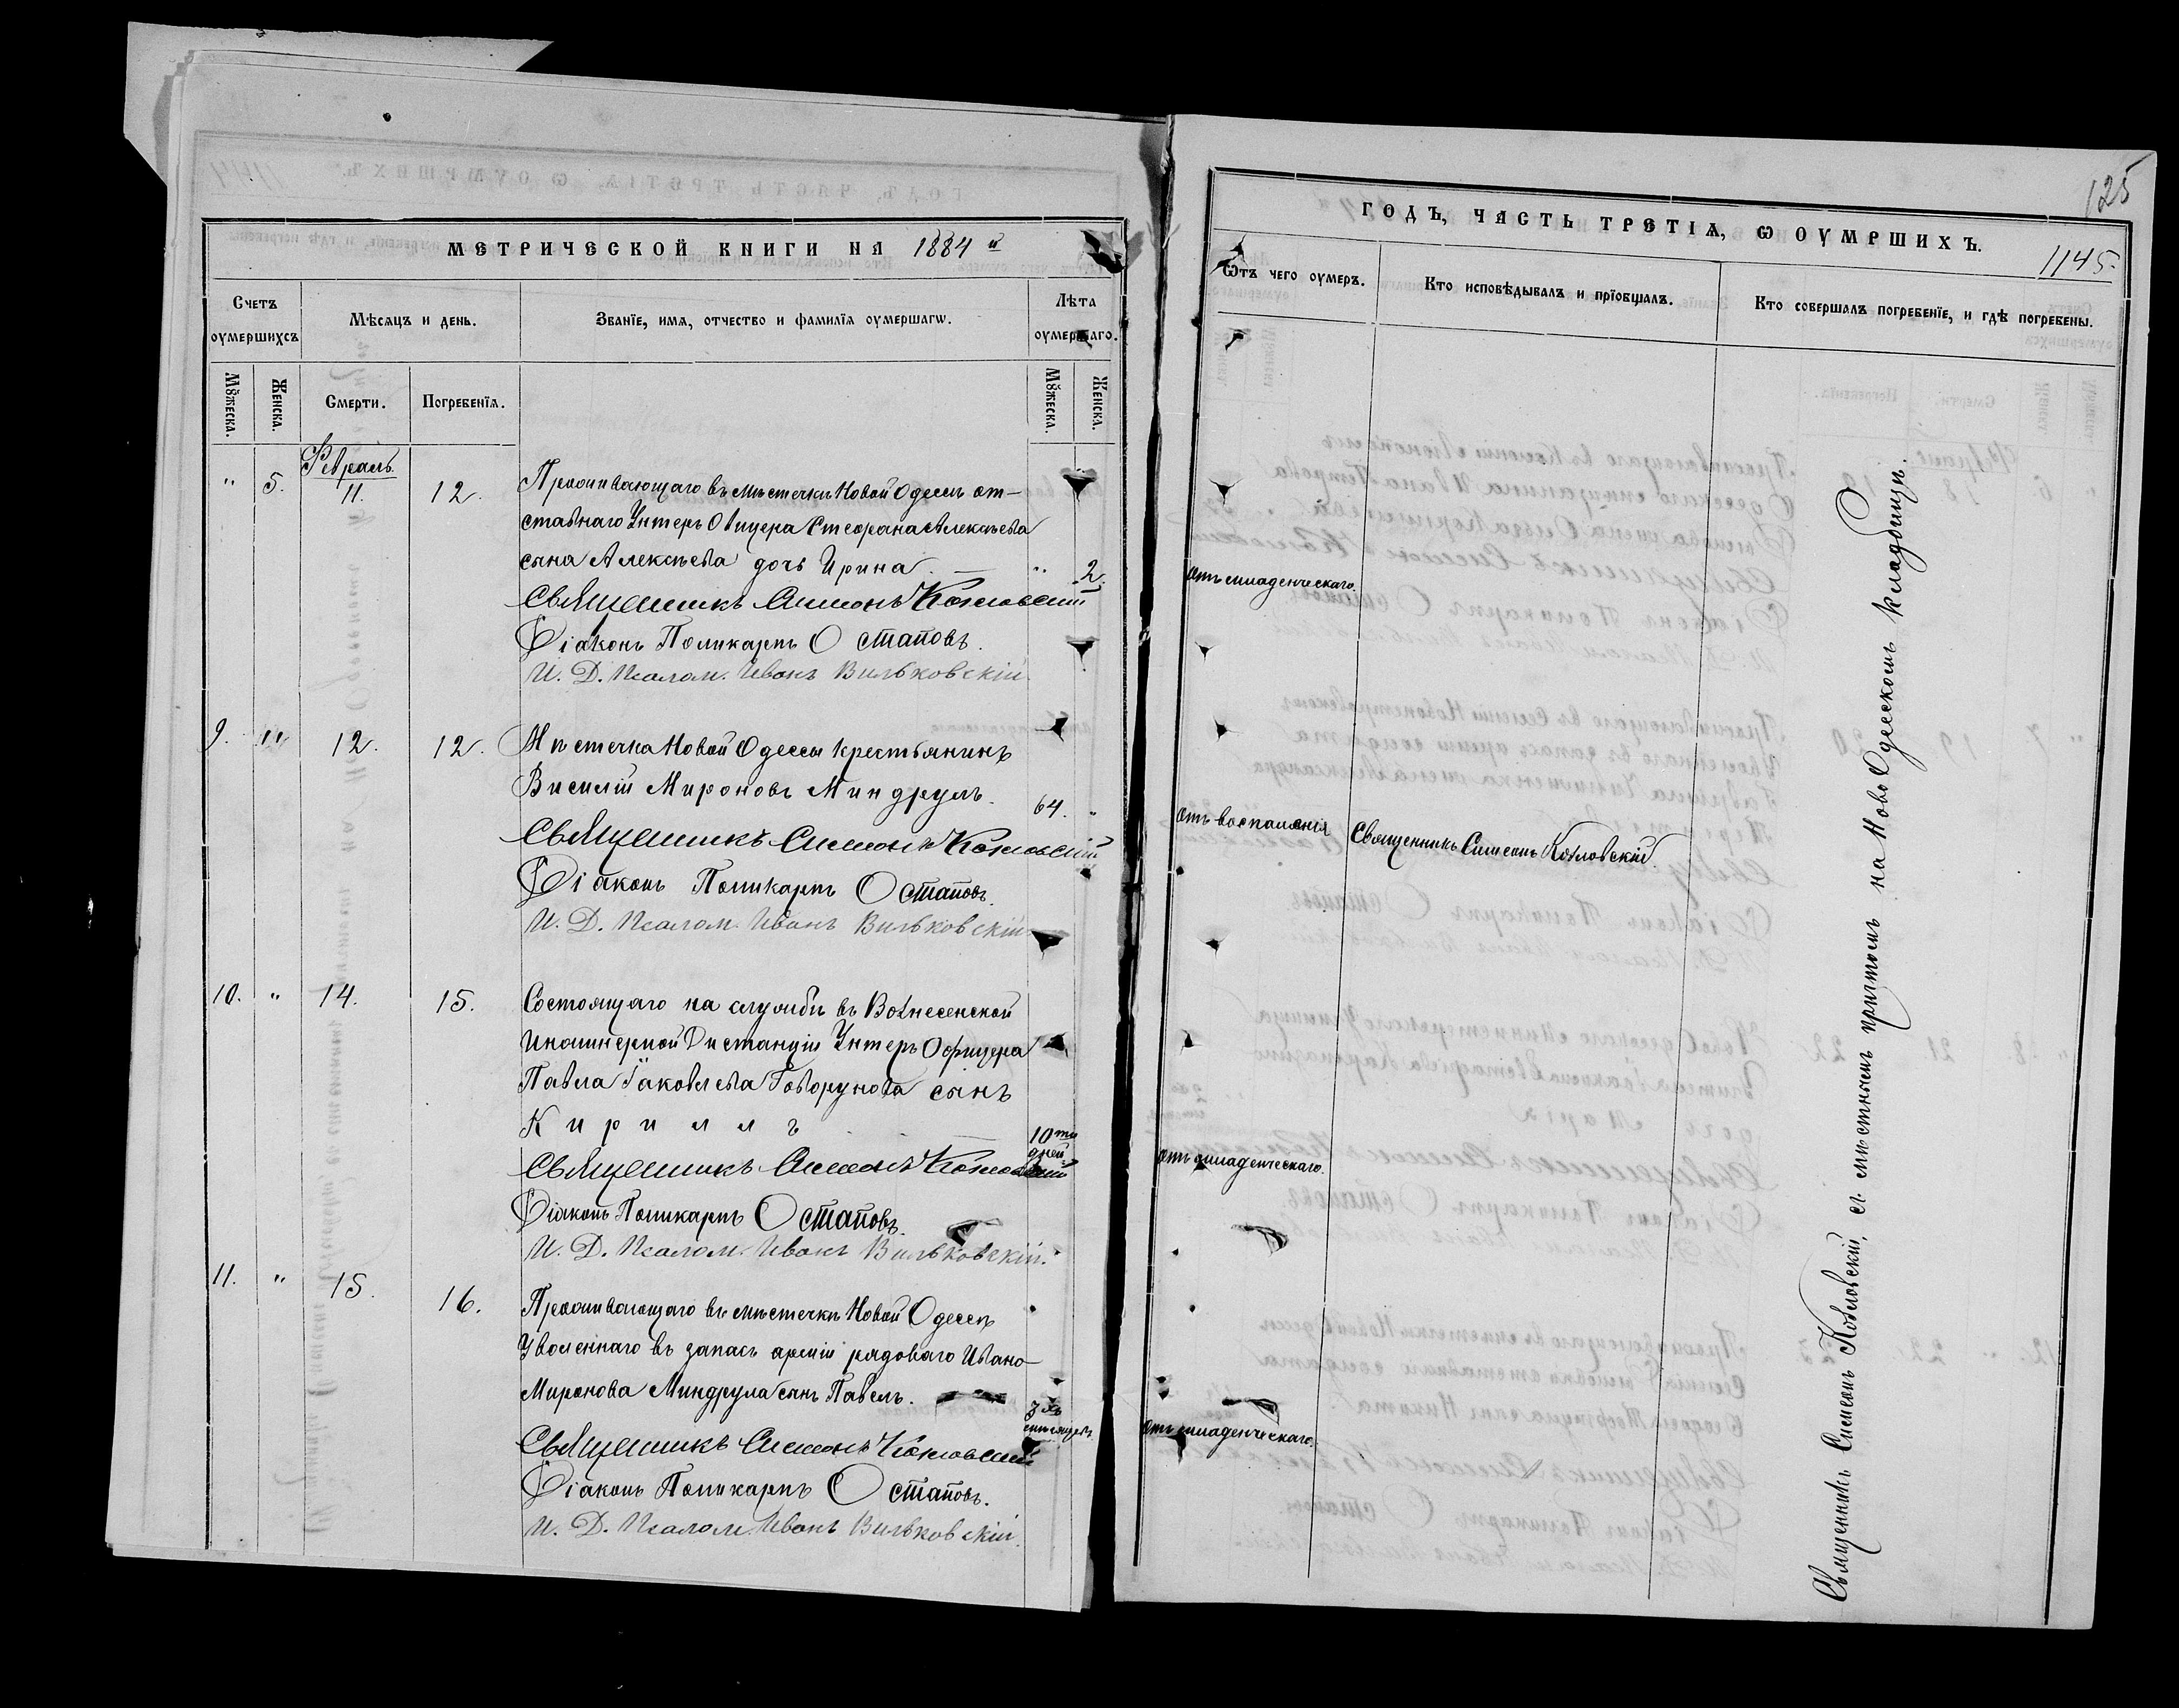 МЕТРИЧЕСКОЙ КНИГИ НА 1884 й
Счетъ оумершихъ
Мѣсяцъ и день.
Званіе, имя, отчество и фамилія оумершагѡ.
Лѣта оумершаго.
Мꙋжеска.
Женска.
Смерти.
Погребенія.
Мꙋжеска.
Женска.
Февраль.
" 5. 11. 12. Проживающаго въ мѣстечкѣ Новой Одессѣ от-
ставнаго Унтеръ Офицера Стефана Алексѣева
сына Алексѣева дочь Ирина. — " 2.
Священникъ Симеонъ Козловскій
Діаконъ Поликарпъ Остаповъ.
И. Д. Псалом. Иванъ Вильковскій.
9. " 12. 12. Мѣстечка Новой Одессы крестьянинъ
Василій Мироновъ Миндрулъ. 64. "
Священникъ Симеонъ Козловскій
Діаконъ Поликарпъ Остаповъ.
И. Д. Псалом. Иванъ Вильковскій.
10. " 14. 15. Состоящаго на службѣ въ Вознесенской
Инжинерной Дистанціи Унтеръ Офицера
Павла Іаковлева Говорунова сынъ
Кириллъ 10ти дней
Священникъ Симеонъ Козловскій
Діаконъ Поликарпъ Остаповъ.
И. Д. Псалом. Иванъ Вильковскій.
11. " 15. 16. Проживающаго въ мѣстечкѣ Новой Одессѣ
Уволеннаго въ запасъ арміи рядоваго Ивана
Миронова Миндрула сынъ Павелъ. 3хъ мѣсяцевъ
Священникъ Симеонъ Козловскій
Діаконъ Поликарпъ Остаповъ.
И. Д. Псалом. Иванъ Вильковскій.
125
ГОДЪ, ЧАСТЬ ТРЕТІЯ, Ѡ ОУМРШИХЪ.
1145.
Ѿтъ чего оумеръ.
Кто исповѣдывалъ и пріобщалъ.
Кто совершалъ погребеніе, и гдѣ погребены.
отъ младенческаго.
отъ воспаленія
Священникъ Симеонъ Козловскій.
отъ младенческаго.
отъ младенческаго.
Священникъ Симеонъ Козловскій, съ мѣстнымъ причтомъ на Ново Одесскомъ кладбищѣ.